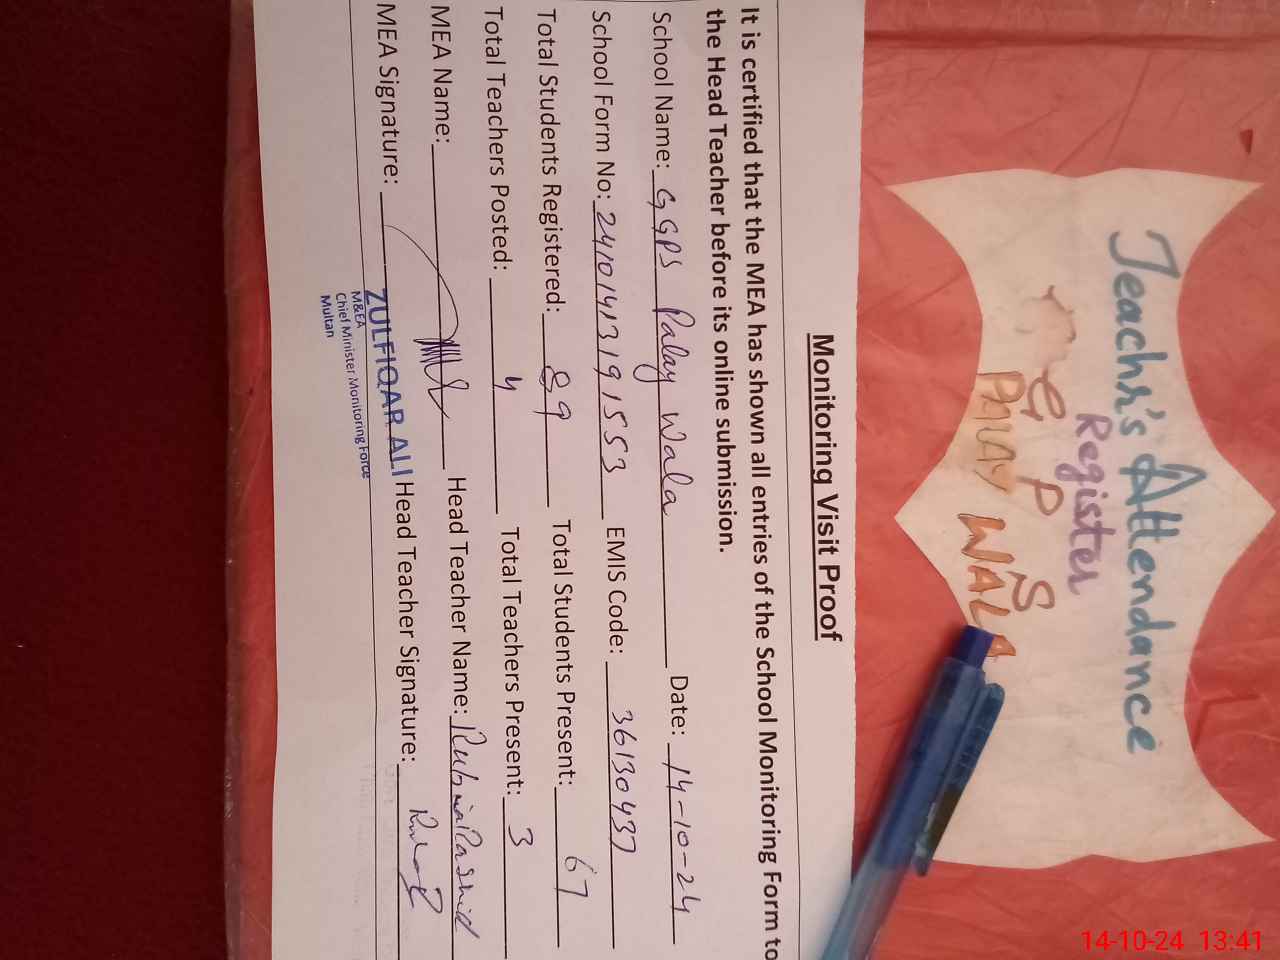 Teachr's Attendance
Register
G P S
PALAY WALA
Monitoring Visit Proof
It is certified that the MEA has shown all entries of the School Monitoring Form to
the Head Teacher before its online submission.
School Name: GGPS Palay Wala Date: 14-10-24
School Form No: 24101413191553 EMIS Code: 36130437
Total Students Registered: 89 Total Students Present: 67
Total Teachers Posted: 4 Total Teachers Present: 3
MEA Name: Head Teacher Name: Rubina Rashid
MEA Signature: Head Teacher Signature:
ZULFIQAR ALI
M&EA
Chief Minister Monitoring Force
Multan
14-10-24 13:41